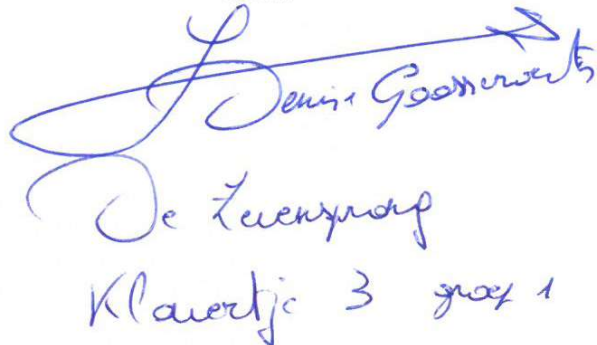 Denise Goossenaerts
De Zevensprong
Klavertje 3 groep 1